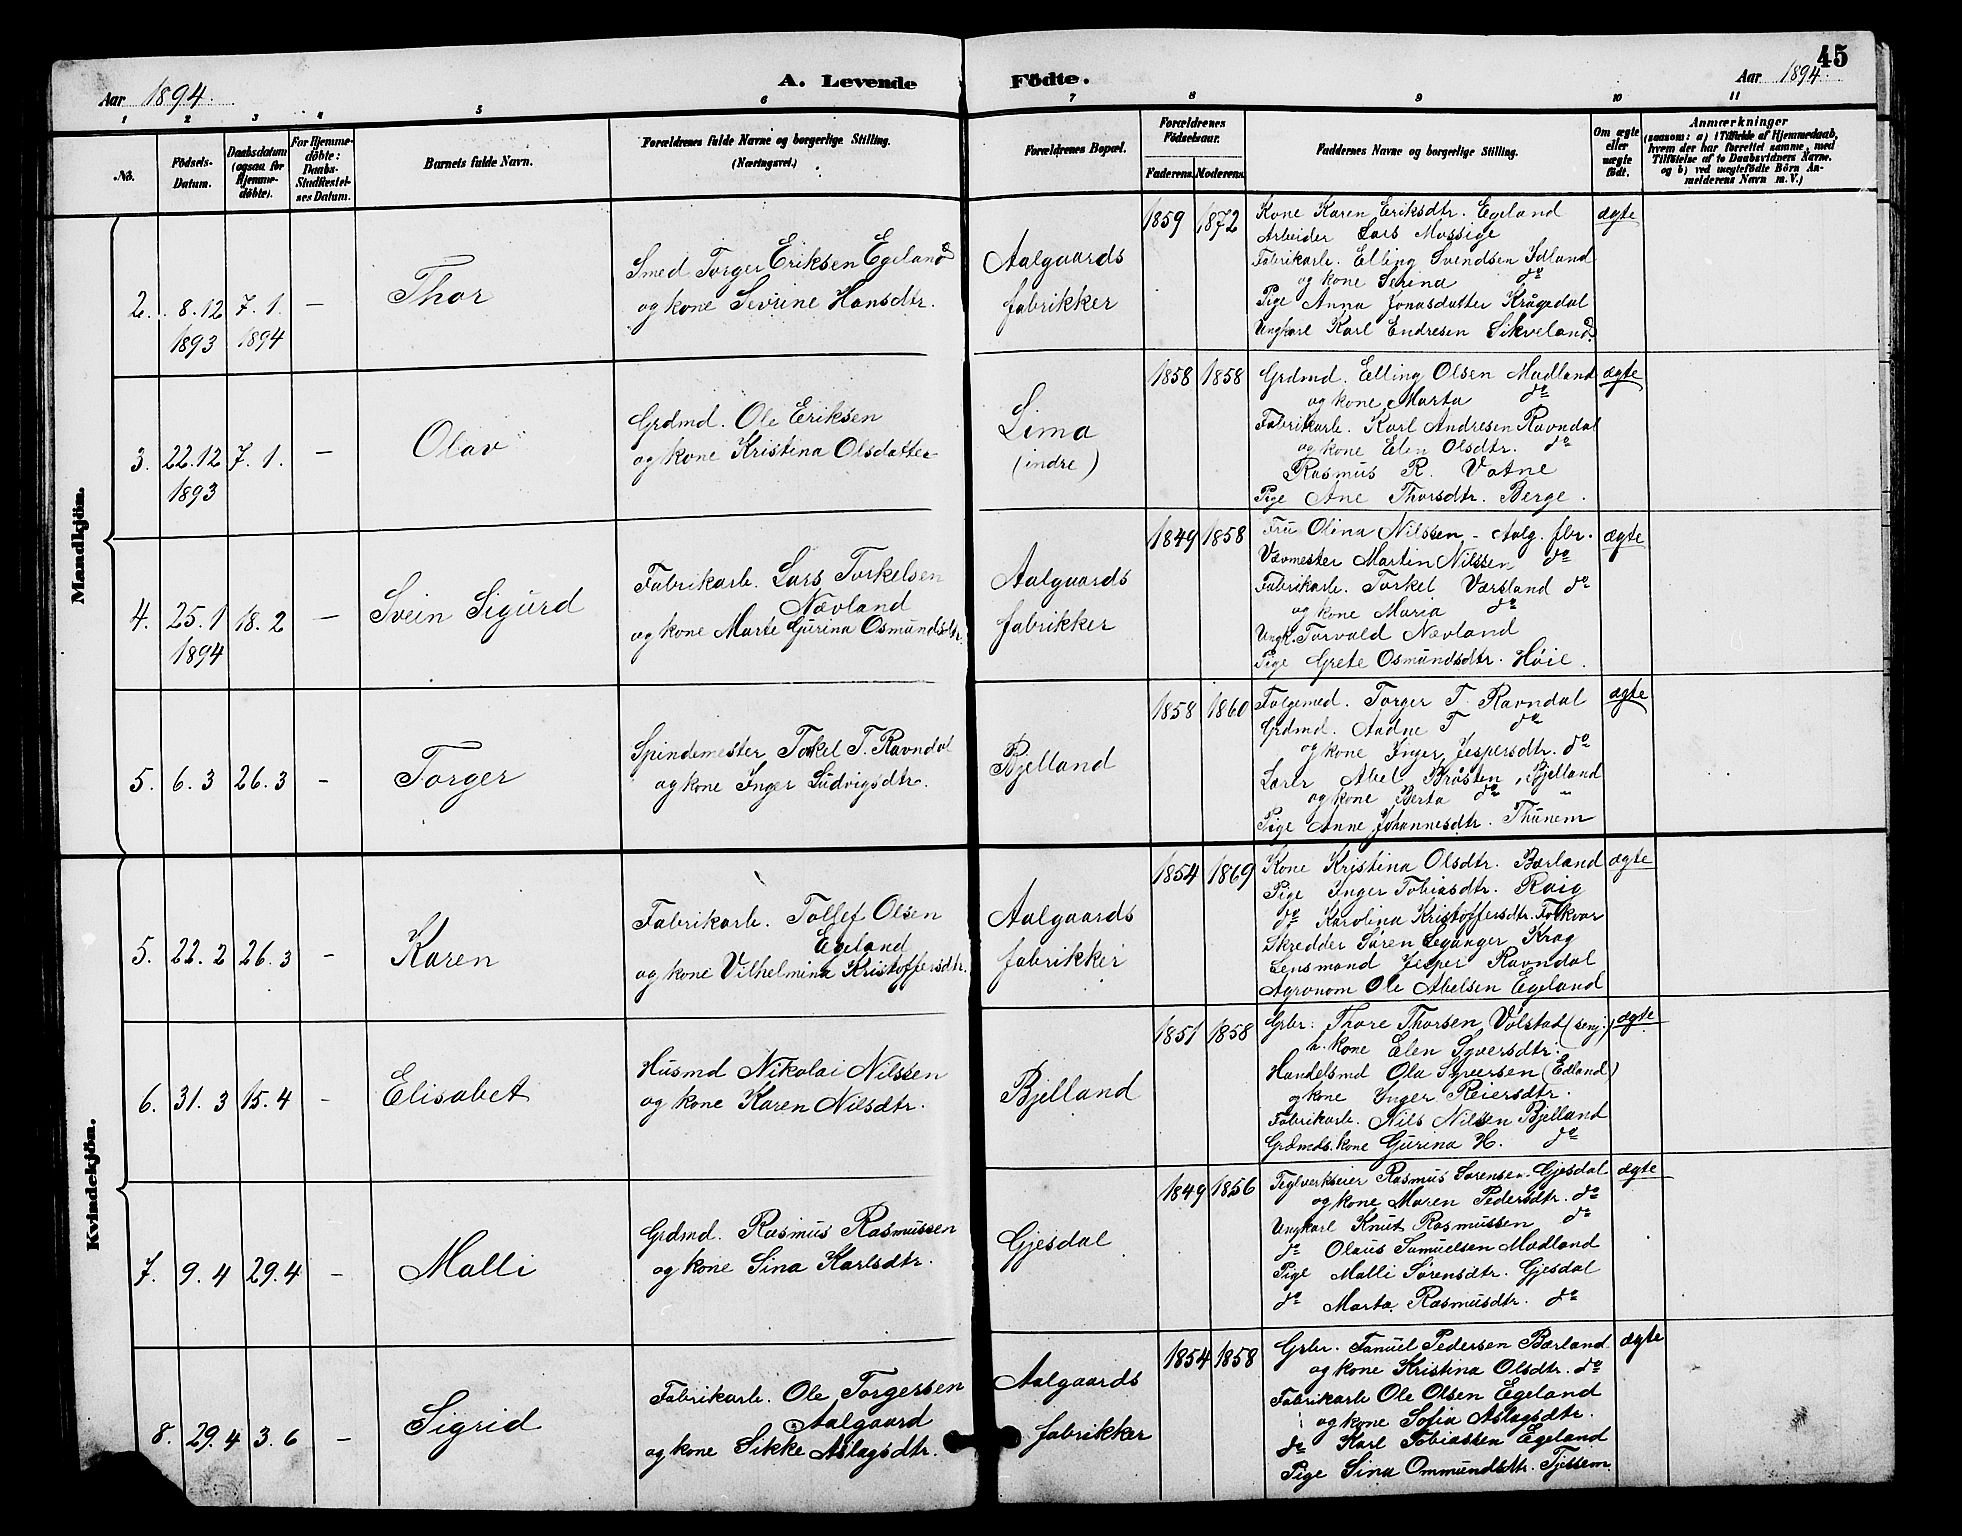 45
Aar 1894.
A. Levende Födte.
Aar 1894.
1 2 3 4 5 6 7 8 9 10 11
No.
Födsels-
Datum.
Daabsdatum
(ogsaa for
Hjemme-
döbte).
For Hjemme-
døbte:
Daabs-
Stadfæstel-
ses Datum.
Barnets fulde Navn.
Forældrenes fulde Navne og borgerlige Stilling.
(Næringsvei.)
Forældrenes Bopæl.
Forældrenes
Födselsaar.
Faderens. Moderens.
Faddernes Navne og borgerlige Stilling.
Om ægte
eller
uægte
födt.
Anmærkninger
(saasom: a) i Tilfælde af Hjemmedaab,
hvem der har forrettet samme, med
Tilföielse af to Daabsvidners Navne.
og b) ved uægtefödte Börn An-
melderens Navn m. V.)
Mandkjön.
2. 8.12 7.1. —
1893 1894
Thor
Smed Torger Eriksen Egeland
og kone Sevrine Hansdtr.
Aalgaards
fabrikker
1859 1872
Kone Karen Eriksdtr. Egeland
Arbeider Lars Mossige
Fabrikarb. Elling Svendsen Idland
og kone Serina do
Pige Anna Jonasdatter Kragedal
Ungkarl Karl Endresen Sikveland
ægte
3. 22.12 7.1. —
1893
Olav
Grdmd. Ole Eriksen
og kone Kristina Olsdatter
Lima
(indre)
1858 1858
Grdmd. Elling Olsen Madland
og kone Marta do
Fabrikarb. Karl Andresen Ravndal
og kone Elen Olsdtr. do
Rasmus R. Vatne
Pige Ane Thorsdtr. Berge.
ægte
4. 25.1 18.2 —
1894
Svein Sigurd
Fabrikarb. Lars Torkelsen
Nævland
og kone Marte Gurina Osmundsdtr.
Aalgaards
fabrikker
1849 1858
Fru Olina Nilssen - Aalg. fbr.
Vævmester Martin Nilssen do
Fabrikarb. Torkel Værsland do
og kone Maria do
Ungk. Torvald Nævland
Pige Grete Osmundsdtr. Höie.
ægte
5. 6.3 26.3 -
Torger
Spindemester Tokel T. Ravndal
og kone Inger Ludvigsdtr.
Bjelland
1858 1860
Folgemd. Torger T. Ravndal
Grdmd. Aadne T do
og kone Inger Jespersdtr. do
Lærer Abel Bråsten, Bjelland
og kone Berta do "
Pige Anne Johannesdtr. Thunem
ægte
Kvindekjön.
5. 22.2 26.3 -
Karen
Fabrikarb. Tollef Olsen
Egeland
og kone Vilhelmina Kristoffersdtr.
Aalgaards
fabrikker
1854 1869
Kone Kristina Olsdtr. Bærland
Pige Inger Tobiasdtr. Roig
do Karolina Kristoffersdtr. Folkvor
Skredder Sören Leganger Krag
Lensmand Jesper Ravndal
Agronom Ole Abelsen Egeland
ægte
6. 31.3 15.4 -
Elisabet
Husmd Nikolai Nilssen
og kone Karen Nilsdtr.
Bjelland
1851 1858
Grbr: Thore Thorsen Volstad (senj.)
h. kone Elen Syversdtr.
Handelsmd Ola Syversen (Edland)
og kone Inger Reiersdtr.
Fabrikarb. Nils Nilsen Bjelland
Grdmds. kone Gurina H. do
ægte
7. 9.4 29.4 -
Malli
Grdmd. Rasmus Rasmussen
og kone Sina Karlsdtr.
Gjesdal
1849 1856
Teglverkseier Rasmus Sørensen Gjesdal
og kone Maren Pedersdtr. do
Ungkarl Knut Rasmussen do
do Olaus Samuelsen Madland
Pige Malli Sørensdtr. Gjesdal
do Marta Rasmusdtr. do
ægte
8. 29.4 3.6 -
Sigrid
Fabrikarb. Ole Torgersen
Aalgaard
og kone Sikke Aslagsdtr.
Aalgaards
fabrikker
1854 1858
Grbr. Samuel Pedersen Bærland
og kone Kristina Olsdtr. do
Fabrikarb Ole Olsen Egeland
og kone Sofia Aslagsdtr.
do Karl Tobiassen Egeland
Pige Sina Ommundsdtr. Tjessem
ægte